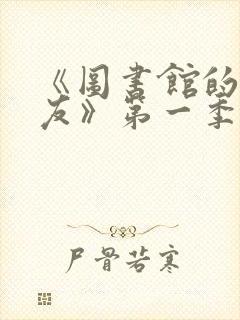 《圖書館的
友》第一季
尸骨若寒